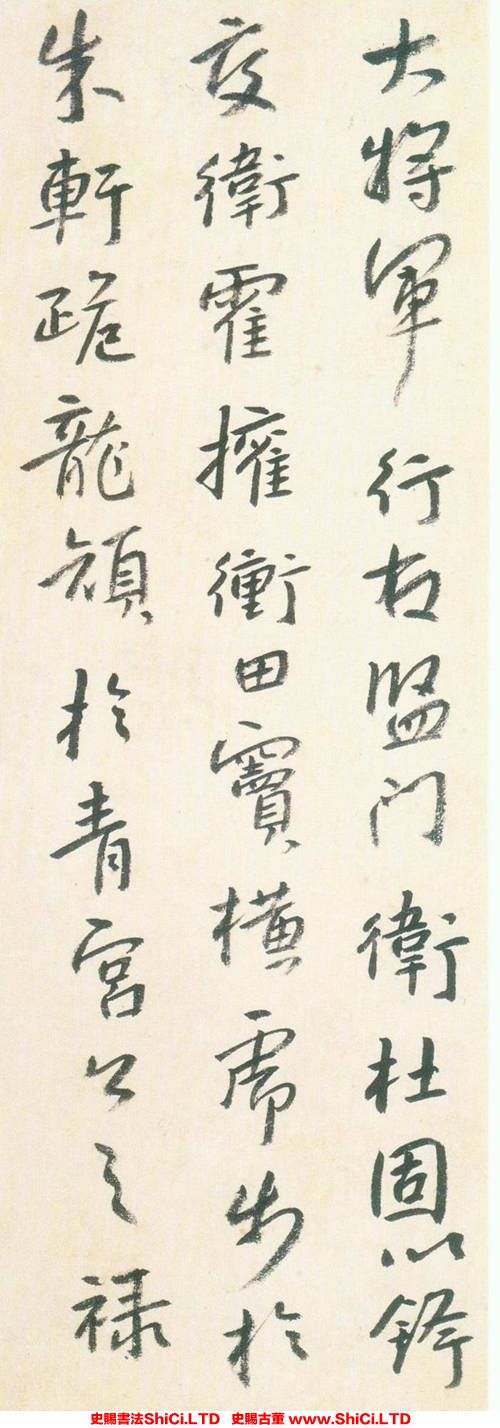 大將軍行右監门衛杜固以鋒
交衛霍擁衝田竇橫虎步於
朱軒跪龍顏於青宮公之禄
史賜書法ShiCi.LTD 史賜古董 www.ShiCi.LTD